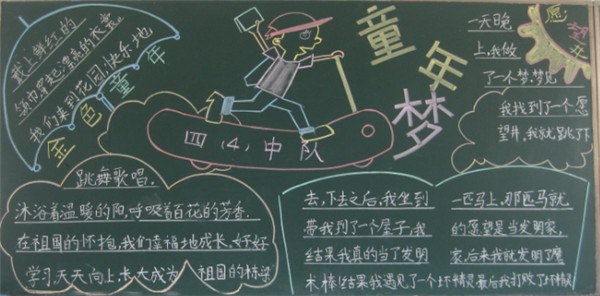 戴上鲜红的
领巾穿起漂亮的衣裳
我们来到花园快乐地
金色童年
跳舞歌唱.
沐浴着温暖的阳,呼吸着百花的芳香.
在祖国的怀抱,我们幸福地成长,好好
学习,天天向上,长大成为祖国的栋梁
四(4)中队
童年梦
愿望井
一天晚
上,我做
了一个梦,梦见
我找到了一个愿
望井,我就跳了下
去,下去之后,我坐到
一匹马上,那匹马就
带我到了一个屋子,我
的愿望是当发明家,
结果我真的当了发明
家,后来我就发明了魔
术棒!结果我遇见了一个坏精灵最后我打败了坏精灵